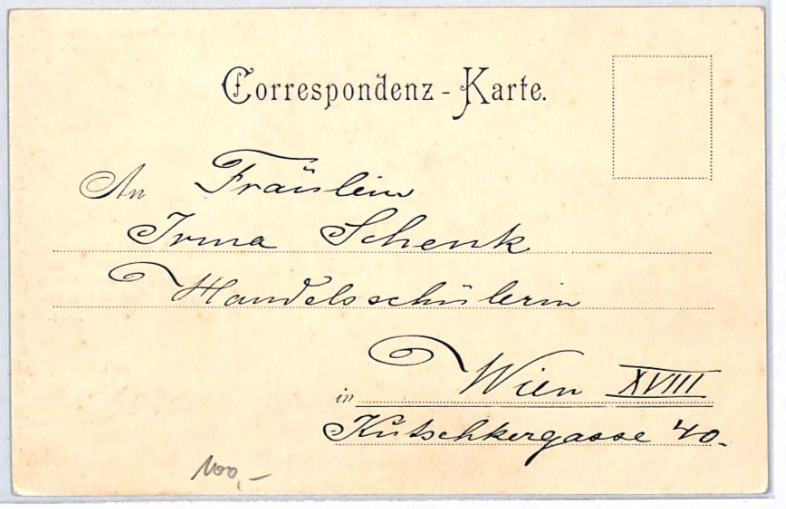 Correspondenz - Karte.
An Fräulein
Irma Schenk
Handelsschülerin
in Wien XVIII
Kutschkergasse 40.
100,-